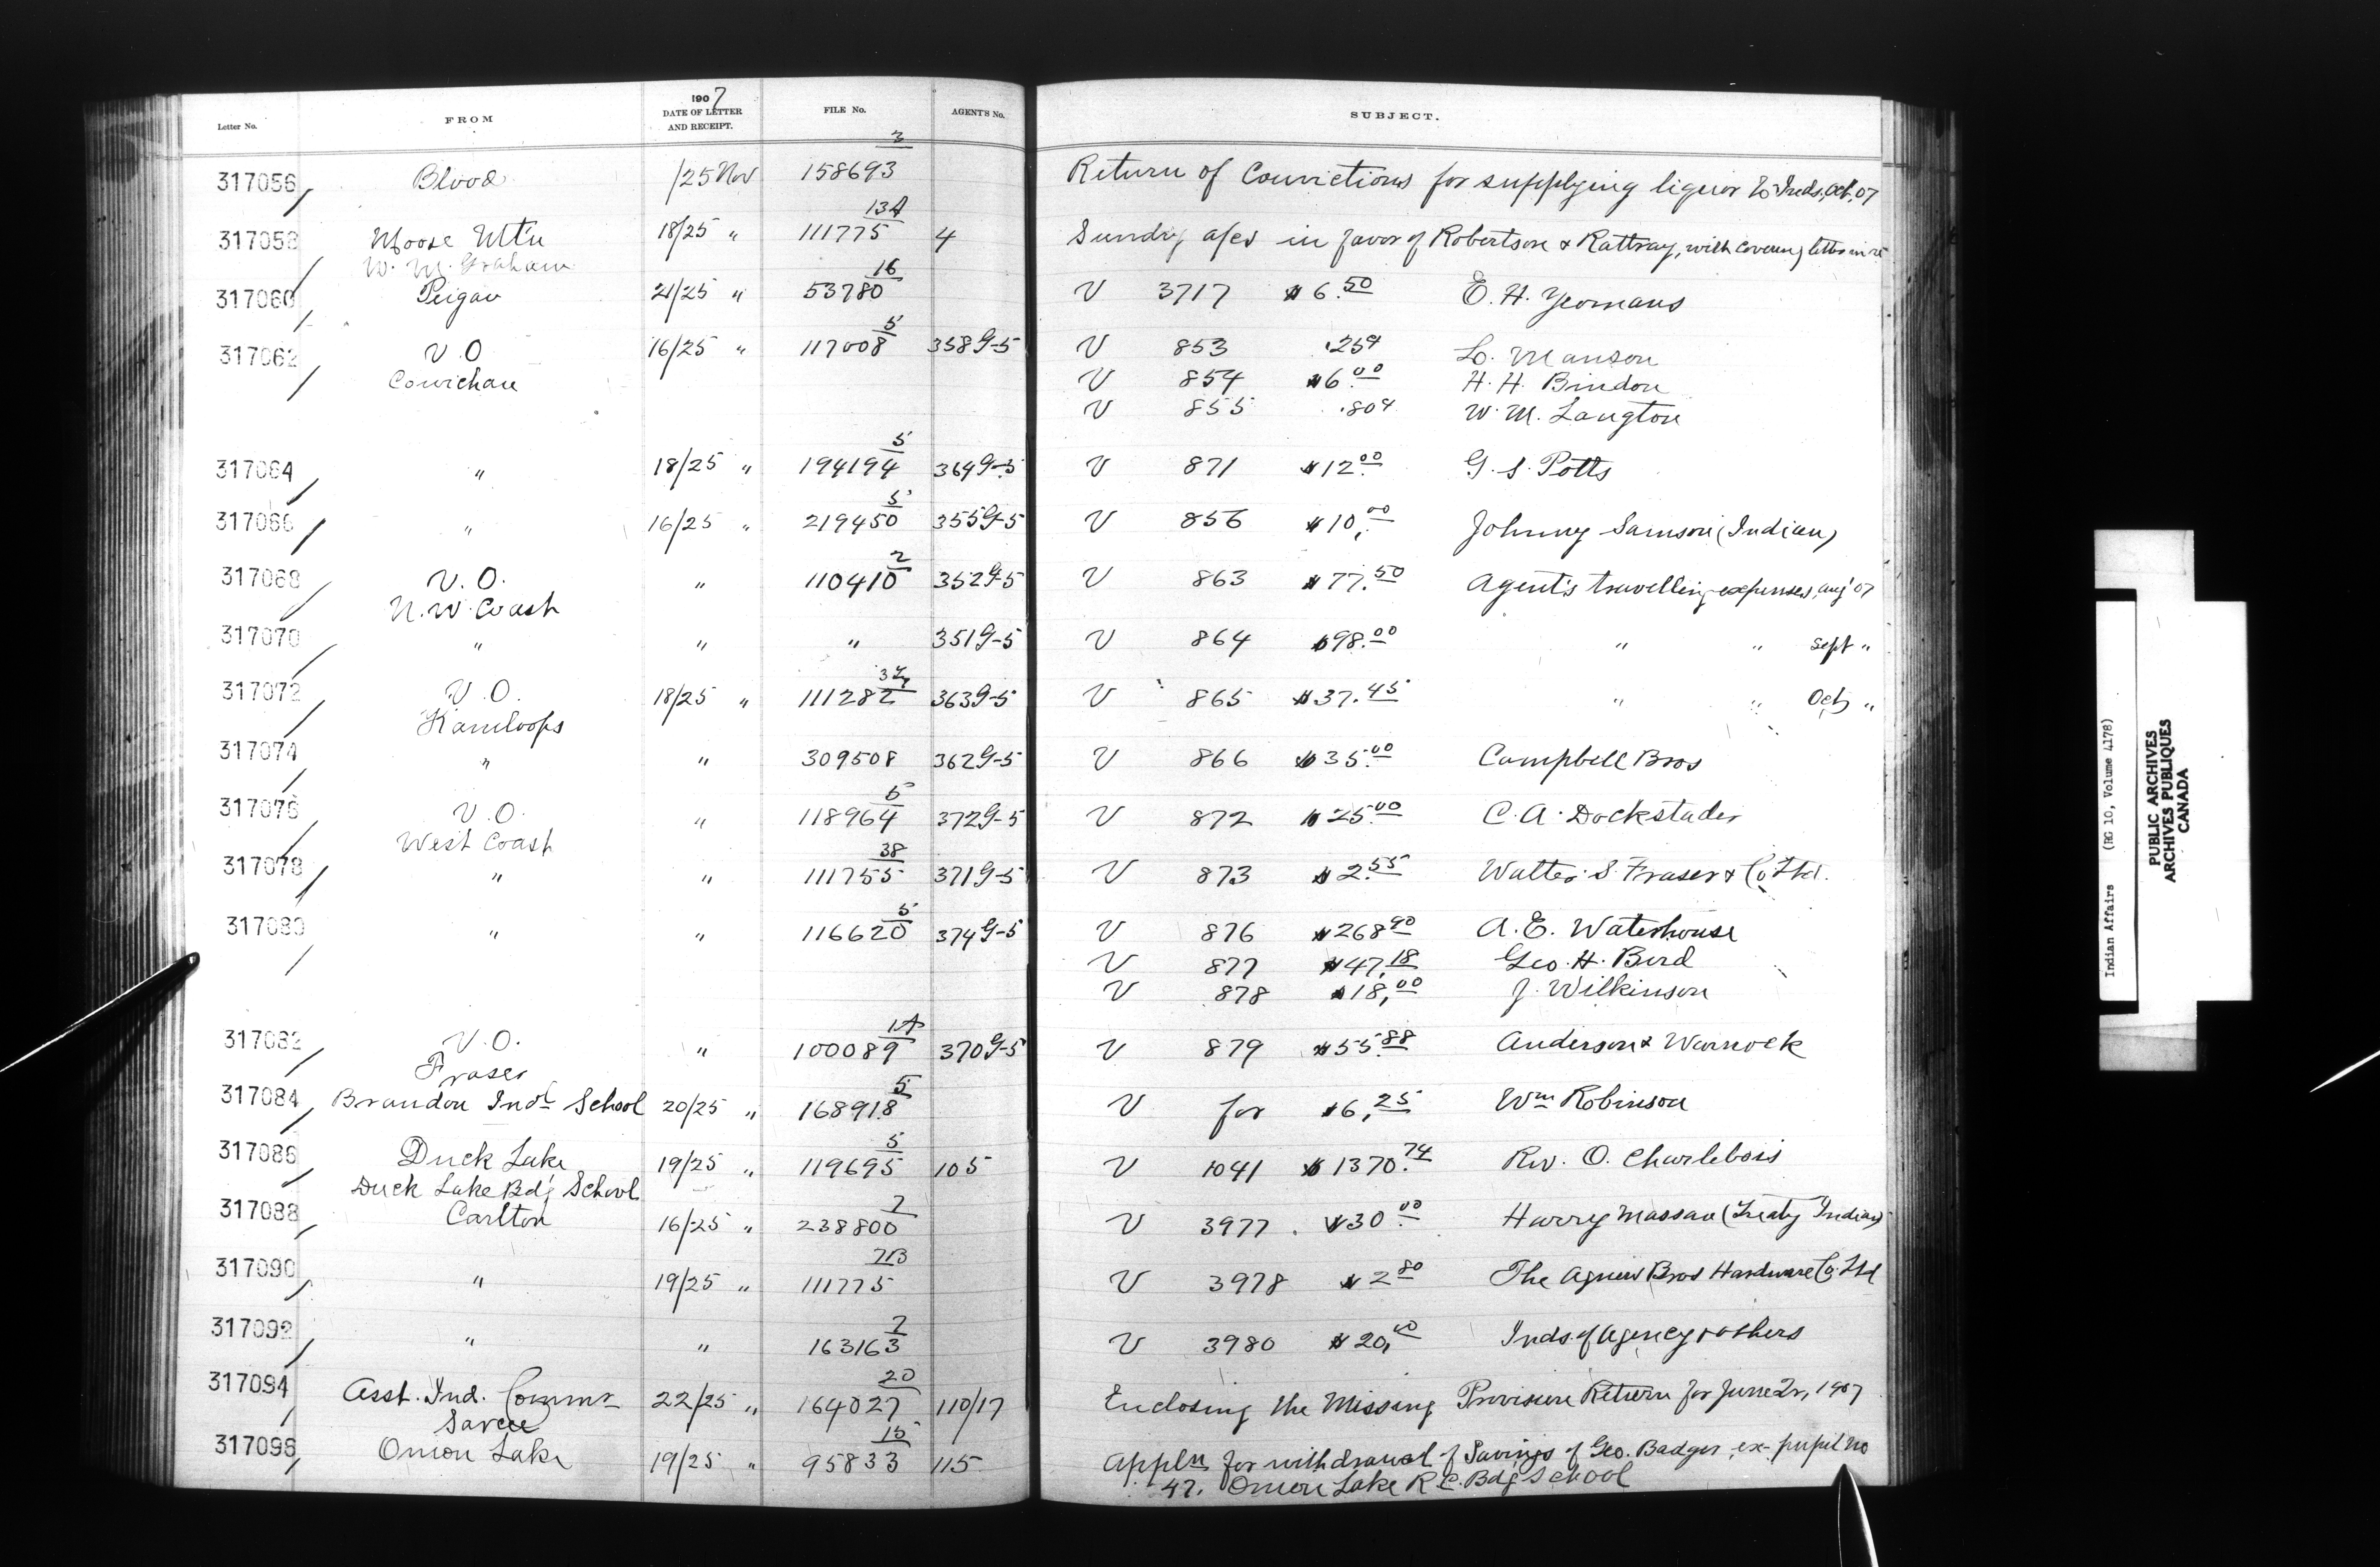 Letter No. FROM 1907 DATE OF LETTER AND RECEIPT. FILE No. AGENT'S No. SUBJECT.
317056 Blood /25 Nov 158693/3 Return of Convictions for supplying liquor to Inds, Oct. 07
317058 Moose Mt'n 18/25 " 111775/13A 4 Sundry a/cs in favor of Robertson & Rattray, with covering letter in re
W. M. Graham
317060 Peigan 21/25 " 53780/16 V 3717 $6.50 E. H. Yeomans
317062 V.O. 16/25 " 117008/5 358 G-5 V 853 .25¢ L. Manson
Cowichan V 854 $6.00 H. H. Bindon
V 855 .80¢ W. M. Langton
317064 " 18/25 " 194194/5 364 G-5 V 871 $12.00 G. S. Potts
317066 " 16/25 " 219450/5 355 G-5 V 856 $10.00 Johnny Samson (Indian)
317068 V.O. " 110410/2 352 G-5 V 863 $77.50 Agent's travelling expenses, Aug' 07
N.W. Coast
317070 " " " 351 G-5 V 864 $98.00 " " Sept "
317072 V.O. 18/25 " 111282 363 G-5 V 865 $37.45 " " Oct "
Kamloops
317074 " " 309508 362 G-5 V 866 $35.00 Campbell Bros
317076 V.O. " 118964/5 372 G-5 V 872 $25.00 C. A. Dockstader
West Coast
317078 " " 111755/38 371 G-5 V 873 $2.55 Walter S. Fraser & Co. Ltd.
317080 " " 116620/5 374 G-5 V 876 $268.90 A. E. Waterhouse
V 877 $47.18 Geo. H. Bird
V 878 $18.00 J. Wilkinson
317082 V.O. " 100089/1A 370 G-5 V 879 $55.88 Anderson & Warnock
Fraser
317084 Brandon Indl School 20/25 " 168918/5 V for $6.25 Wm Robinson
317086 Duck Lake 19/25 " 119695/5 105 V 1041 $1370.74 Rev. O. Charlebois
Duck Lake Bdg School
317088 Carlton 16/25 " 238800/2 V 3977 $30.00 Harry Massau (Treaty Indian)
317090 " 19/25 " 111775/7B V 3978 $2.80 The Agnew Bros Hardware Co. Ltd
317092 " " 163163/2 V 3980 $20.00 Inds. of Agency & others
317094 Asst. Ind. Commr 22/25 " 164027/20 110/17 Enclosing the Missing Provision Return for June Qr, 1907
Sarcee
317096 Onion Lake 19/25 " 95833/15 115 Appln for withdrawal of Savings of Geo. Badger, ex-pupil No
47. Onion Lake R.C. Bdg School
Indian Affairs (RG 10, Volume 4178)
PUBLIC ARCHIVES
ARCHIVES PUBLIQUES
CANADA